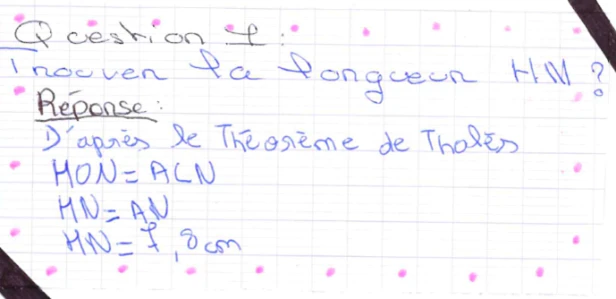 Question 1 :
Trouver la longueur HN ?
Réponse :
D'après le Théorème de Thalès
HON = ACN
HN = AN
HN = 7,8 cm